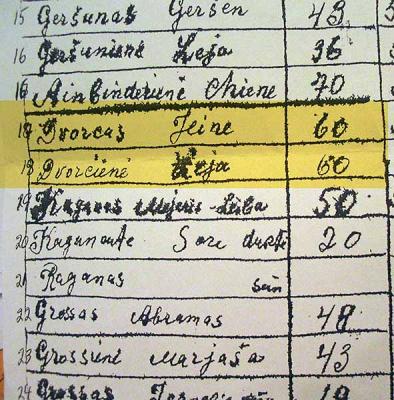 15 Geršunas Geršen 43
16 Geršunienė Leja 36
16 Ainbinderienė Chiene 70
18 Dvorcas Jeine 60
19 Dvorcienė Leja 60
19 Kaganas Mejeris-Leiba 50
20 Kaganaitė Sore duktė 20
21 Kaganas sūn
22 Grosas Abramas 48
23 Grossienė Marjaša 43
24 Grossas 18